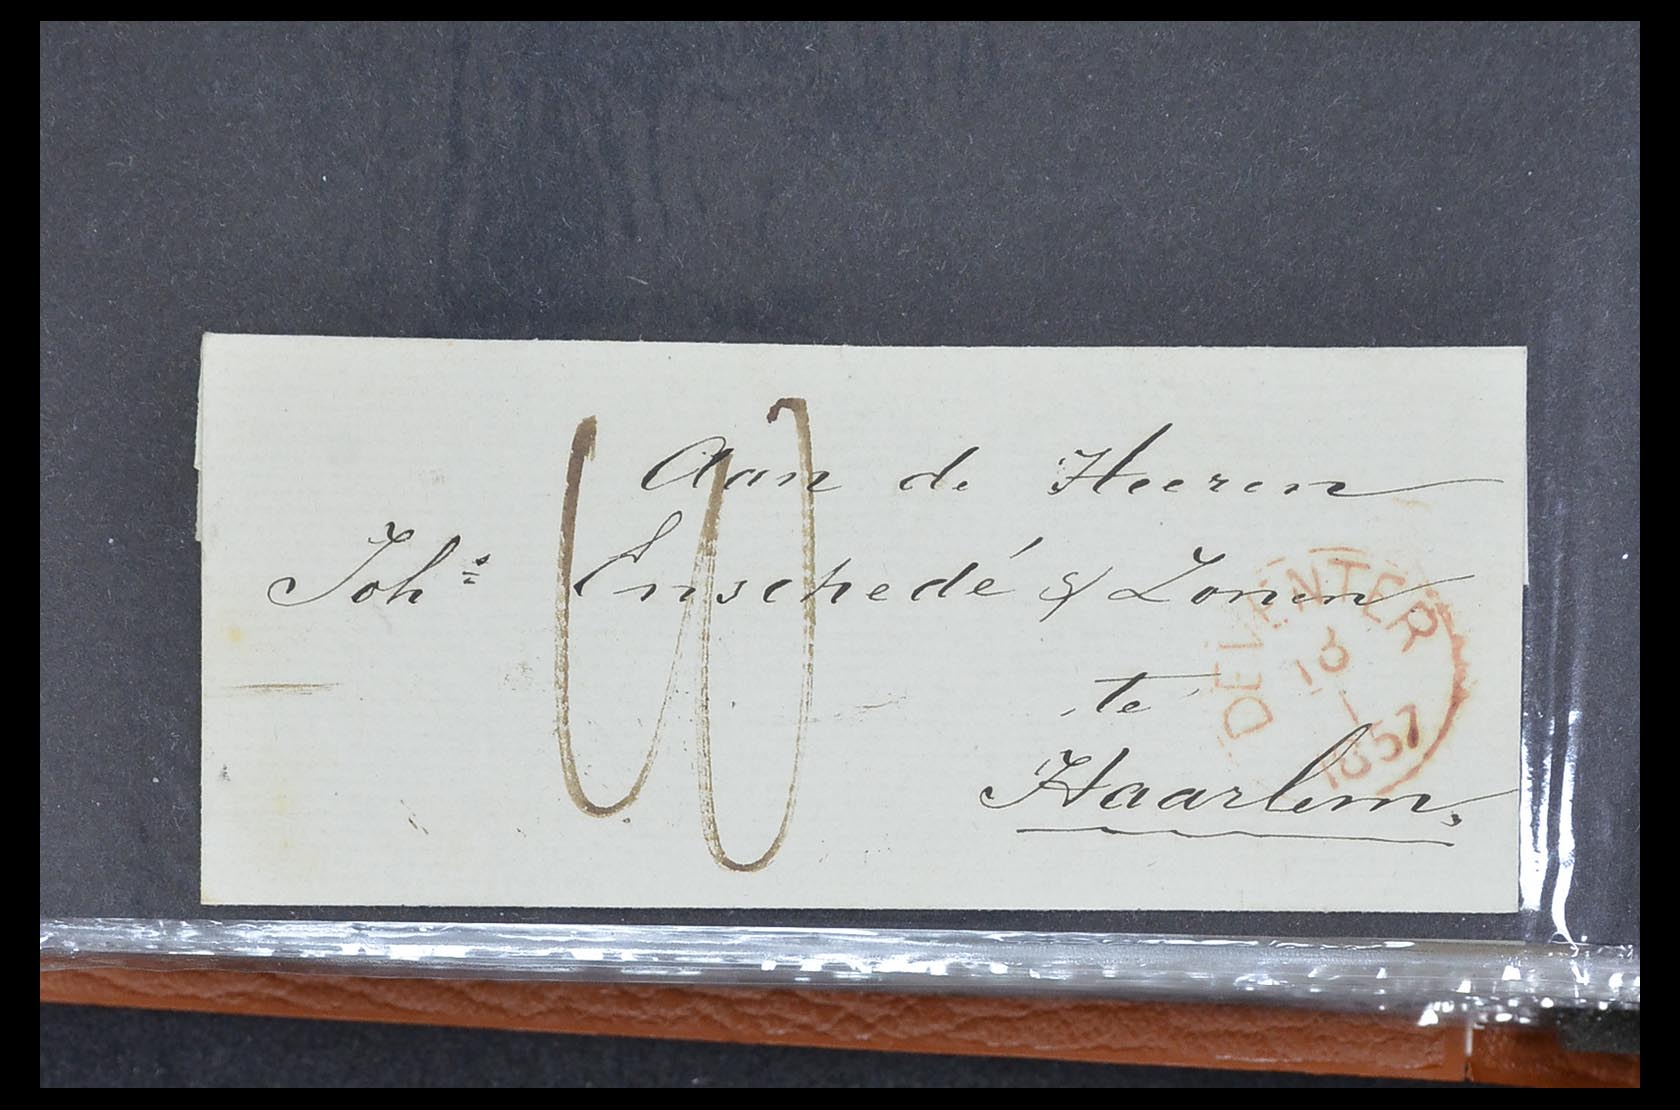 Aan de Heeren
Johs Enschedé & Zonen
te
Haarlem.
DEVENTER
18
1
1857